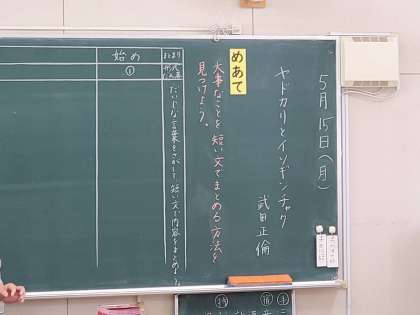 5月15日(月)
ヤドカリとイソギンチャク
武田正倫
めあて
大事なことを短い文でまとめる方法を
見つけよう。
まとまり
始め
①
だいじな言葉をさがして、短い文で内容をまとめ